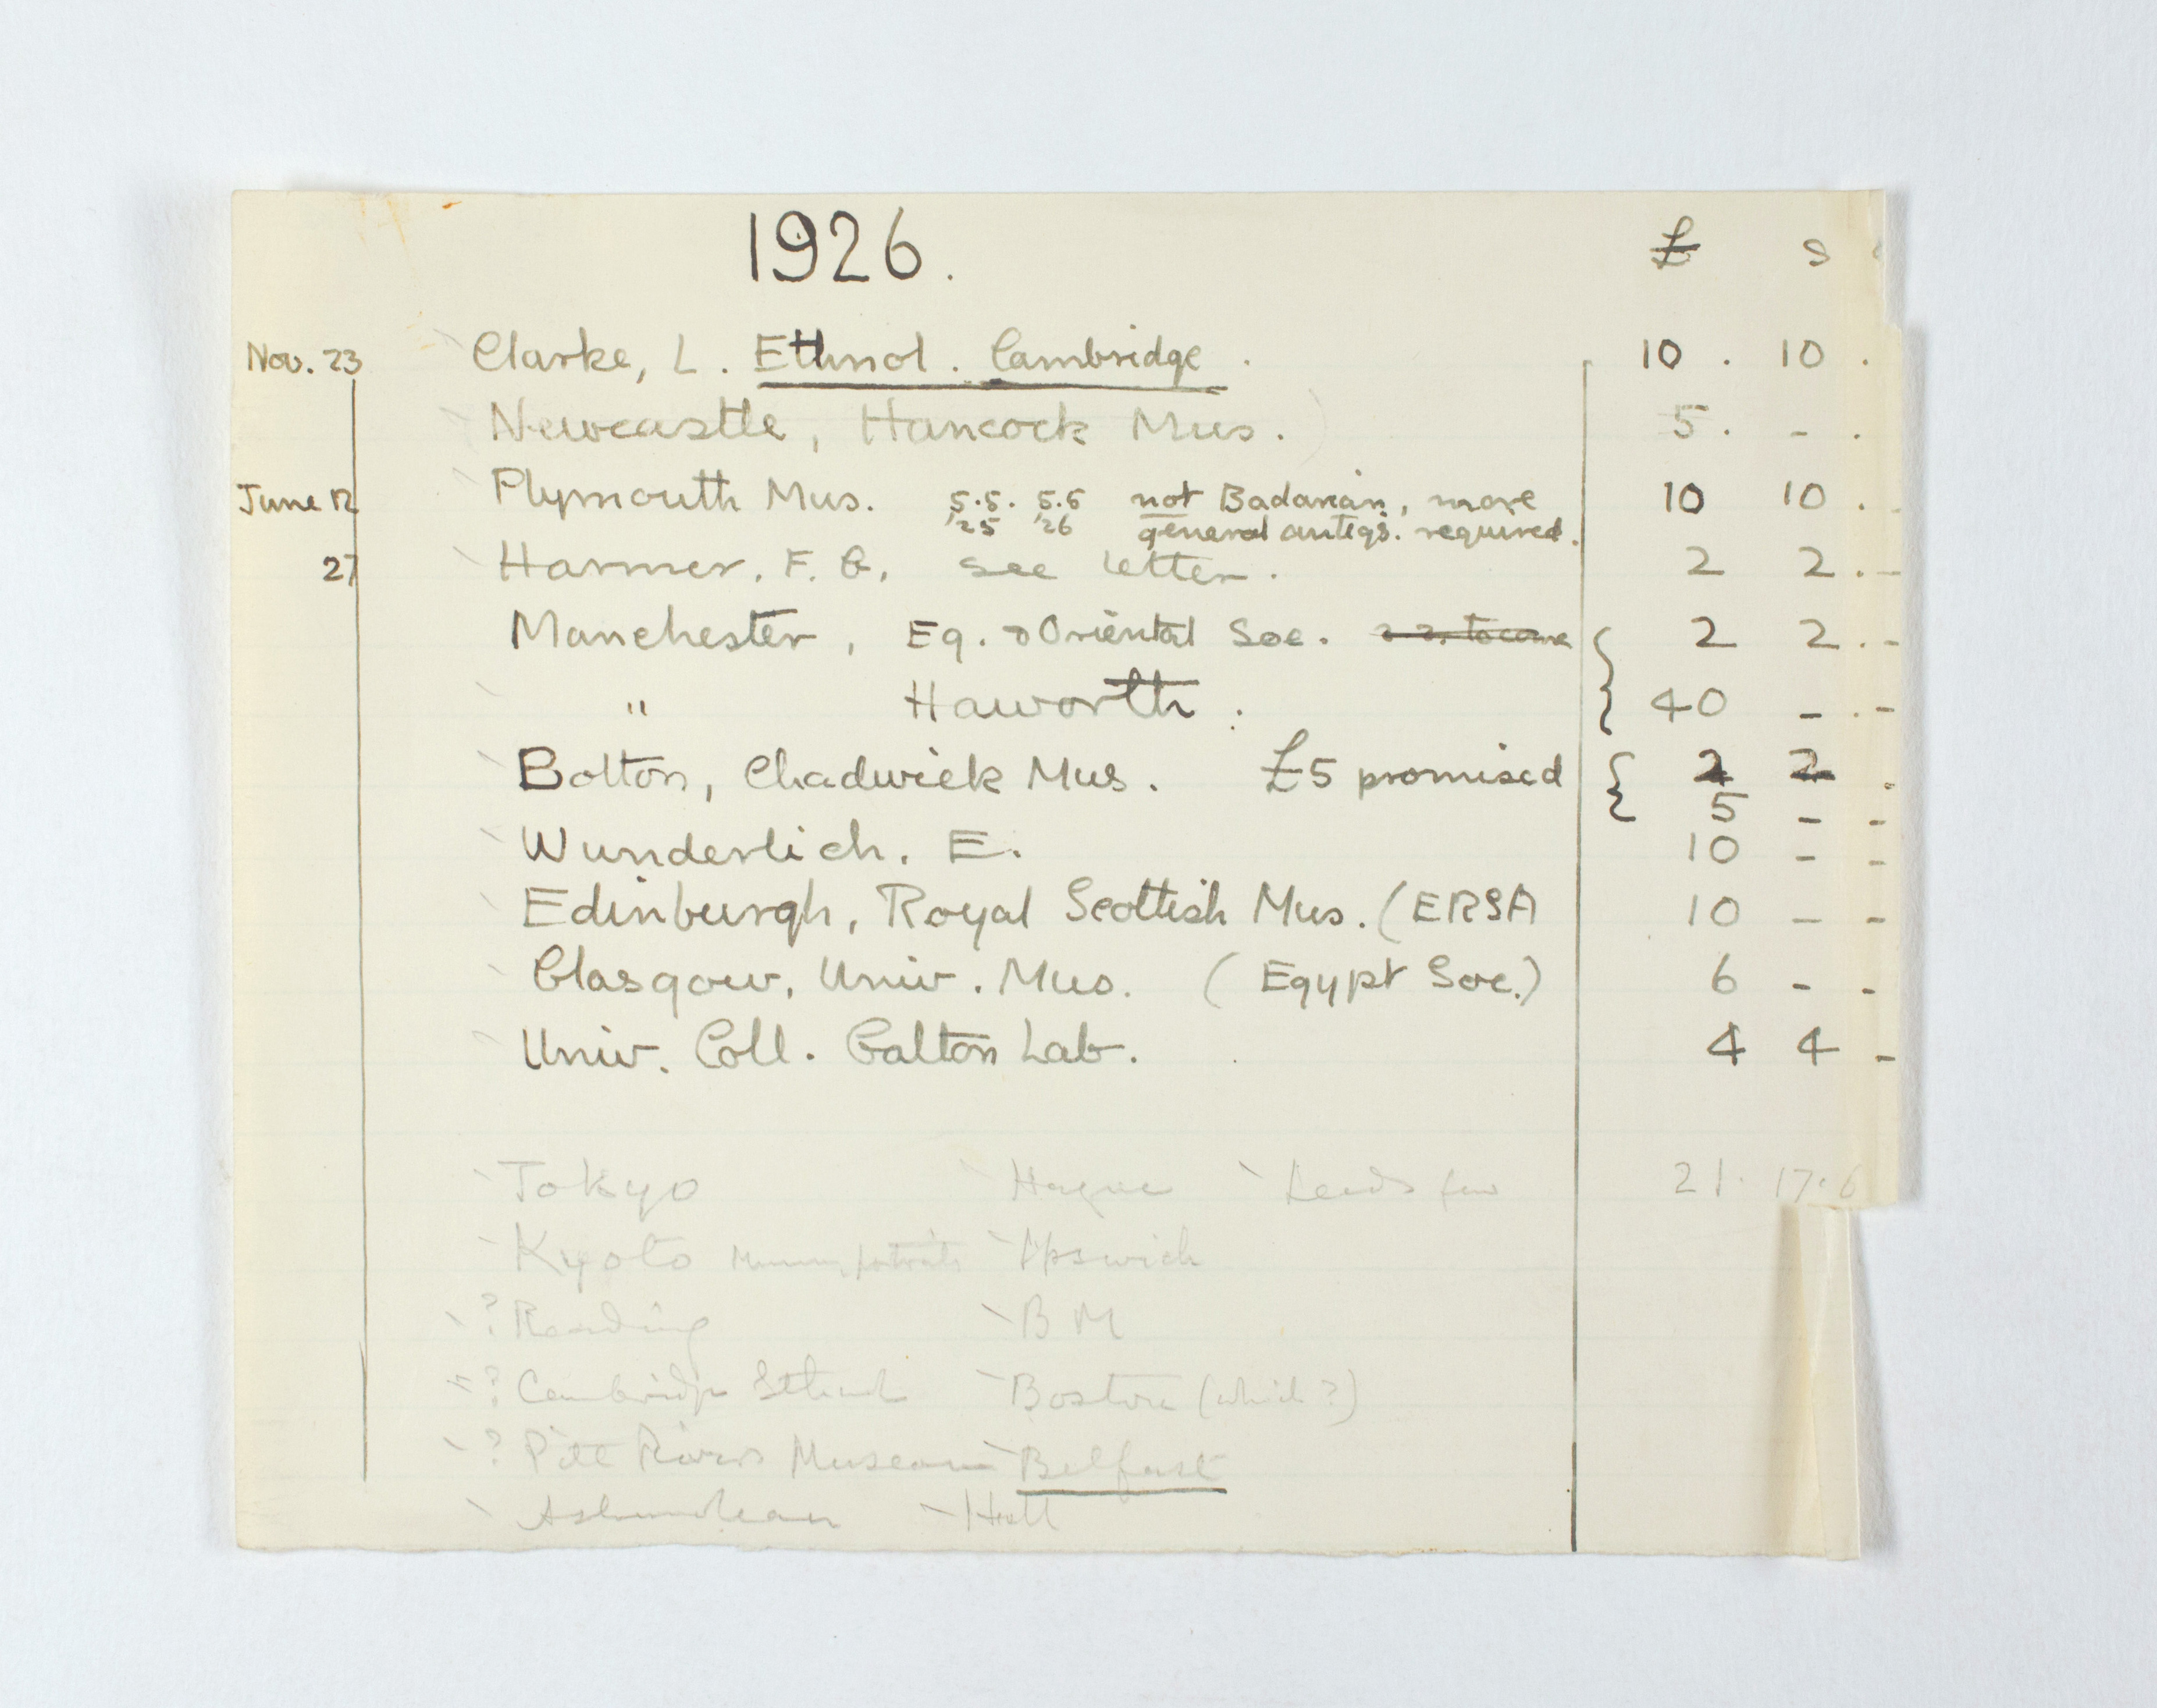 1926. £ s
Nov. 23 Clarke, L. Ethnol. Cambridge. 10 . 10 .
Newcastle, Hancock Mus. 5 . - .
June 12 Plymouth Mus. 5.5. 5.5 not Badarian, more 10 10 .
'25 '26 general antiqs. required.
27 Harmer, F. G. See letter. 2 2 . -
Manchester, Eg. & Oriental Soc. 2 2. to come 2 2 . -
" Haworth. 40 - . -
Bolton, Chadwick Mus. £5 promised 2 2 .
5 - -
Wunderlich, E. 10 - -
Edinburgh, Royal Scottish Mus. (ERSA 10 - -
Glasgow, Univ. Mus. (Egypt Soc.) 6 - -
Univ. Coll. Galton Lab. 4 4 -
Tokyo Hague Leeds few 21. 17. 6
Kyoto Mummy portraits Ipswich
? Reading B M
? Cambridge Ethnol Boston (which?)
? Pitt Rivers Museum Belfast
Ashmolean Hull